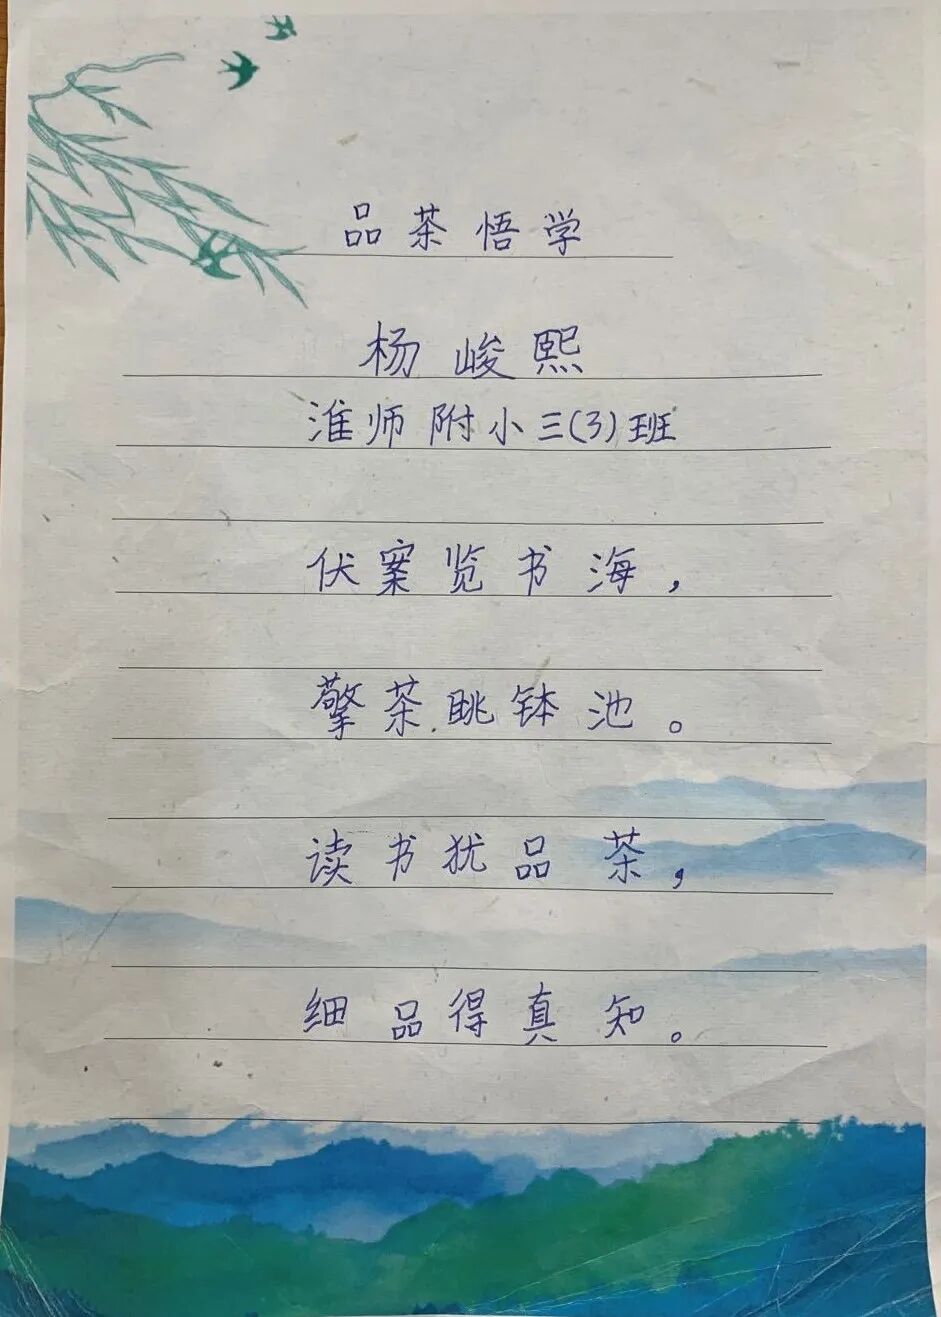 品茶悟学
杨峻熙
淮师附小三(3)班
伏案览书海,
擎茶眺钵池。
读书犹品茶,
细品得真知。